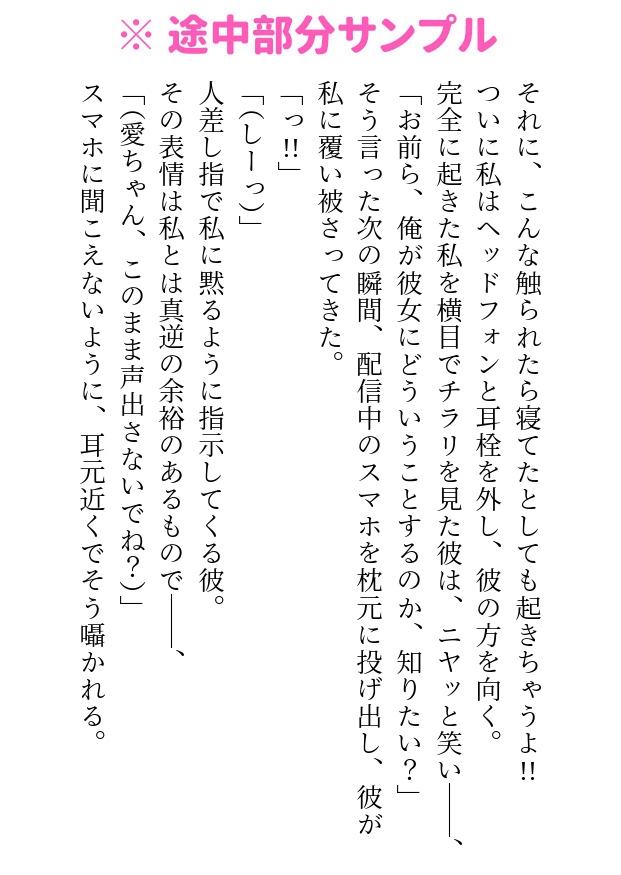 ※ 途中部分サンプル
それに、こんな触られたら寝てたとしても起きちゃうよ!!
ついに私はヘッドフォンと耳栓を外し、彼の方を向く。
完全に起きた私を横目でチラリを見た彼は、ニヤッと笑い――、
「お前ら、俺が彼女にどういうことするのか、知りたい?」
そう言った次の瞬間、配信中のスマホを枕元に投げ出し、彼が
私に覆い被さってきた。
「っ!!」
「(しーっ)」
人差し指で私に黙るように指示してくる彼。
その表情は私とは真逆の余裕のあるもので――、
「(愛ちゃん、このまま声出さないでね?)」
スマホに聞こえないように、耳元近くでそう囁かれる。